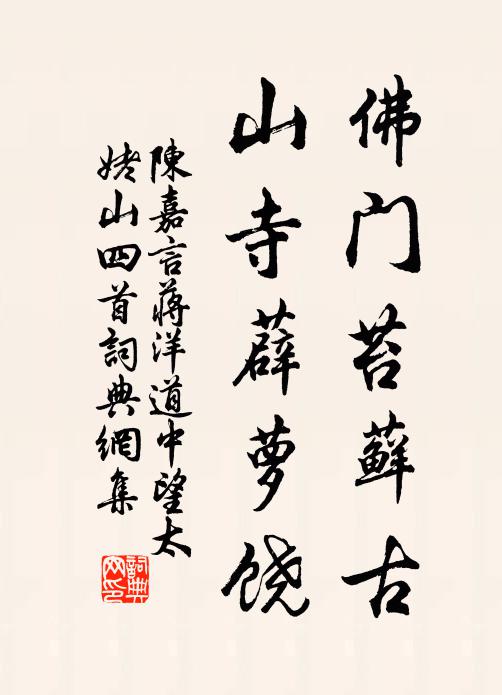 佛门苔藓古
山寺薜萝饶
陳嘉言蒋洋道中望太
姥山四首詞典網集
詞典網印